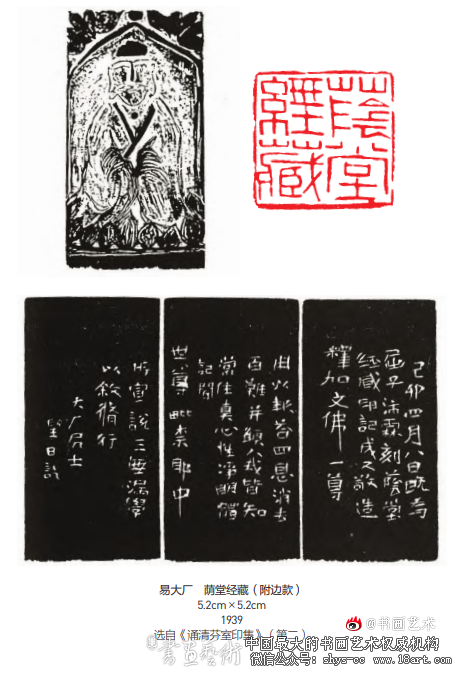 蔭堂
經藏
己卯四月八日既為
屈子沛霖刻蔭堂
經藏印記成又敬造
釋迦文佛一尊
以報答四恩消去
百難并願八戒皆知
常住真心性淨明體
世尊毗柰耶中
所宣說三無漏學
以敘脩行
大厂居士
翌日記
易大厂 荫堂经藏（附边款）
5.2cm×5.2cm
1939
选自《诵清芬室印集》（第二）
@书画艺术
@書畫藝術
中国最大的书画艺术权威机构
微信公众号：shys-cc www.18art.com